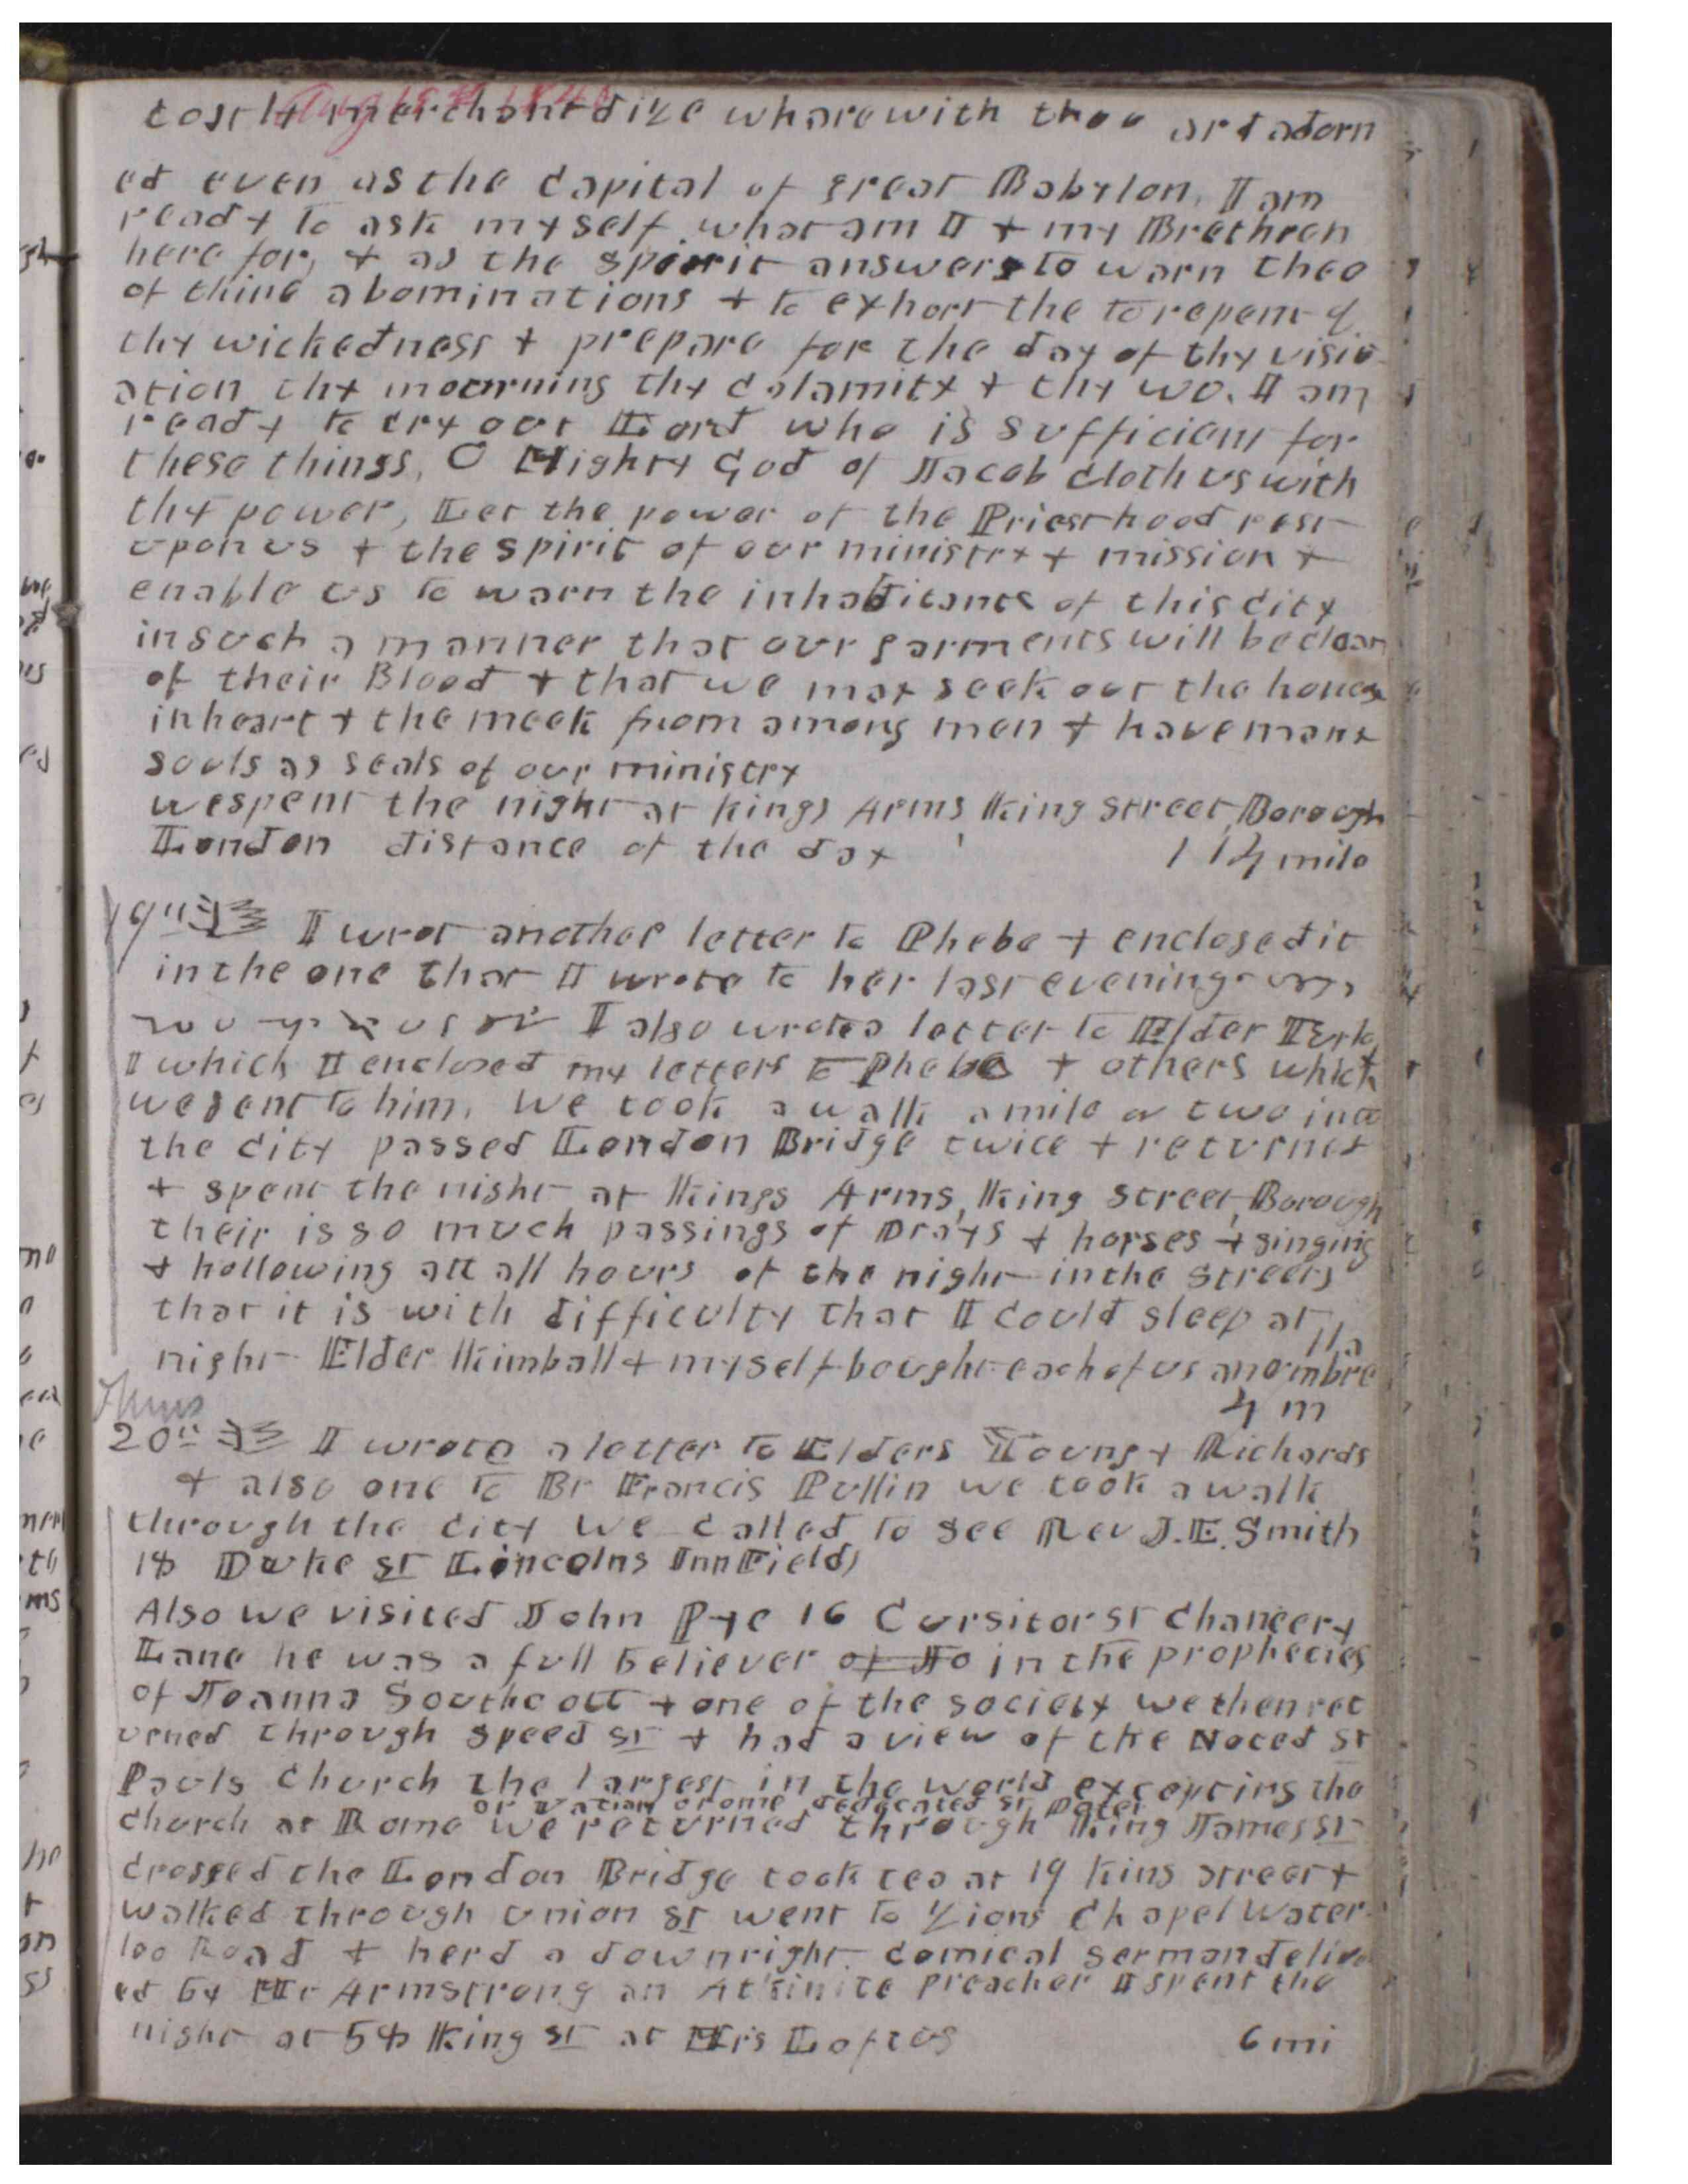 Aug 18th 1840
costly merchandize wharewith thee art adorn
ed even as the Capital of great Babylon, I am
ready to ask myself what am I & my Brethren
here for, & as the spirit answers to warn thee
of thine abominations & to exhort the to repent of
thy wickedness & prepare for the day of thy visit
ation thy mourning thy calamity & thy wo. I am
ready to cry out Lord who is sufficient for
these things, O Mighty God of Jacob cloth us with
thy power, Let the power of the Priesthood rest
upon us & the spirit of our ministry & mission &
enable us to warn the inhabitants of this city
in such a manner that our garments will be clear
of their Blood & that we may seek out the honest
in heart & the meek from among men & have many
souls as seals of our ministry
we spent the night at kings Arms, King Street, Borough
London distance of the day 114 mile
19th I wrot another letter to Phebe & enclosed it
in the one that I wrote to her last evening
I also wrote a letter to Elder Turly
which I enclosed my letters to Phebe & others which
we sent to him. We took a walk a mile or two into
the city passed London Bridge twice & returned
& spent the night at Kings Arms, King Street, Borough
their is so much passings of Drays & horses & singing
& hollowing att all hours of the night in the Streets
that it is with difficulty that I could sleep at
night Elder Kimball & myself bought each of us an ombre
lla
4 m
Thurs
20th I wrote a letter to Elders Young & Richards
& also one to Br Francis Pullin we took a walk
through the city we called to see Rev J.E. Smith
18 Duke St Lincolns Inn Fields
Also we visited John Pye 16 Cursitor St Chancery
Lane he was a full believer of Jo in the prophecies
of Joanna Southcott & one of the society we then ret
urned through Speed St & had a view of the Noted St
Pauls Church the largest in the world excepting the
or Vatican of rome dedicated St Peter
church at Rome we returned through King James St
crossed the London Bridge took tea at 19 King Street &
walked through Union St went to Zions Chapel Water
loo Road & herd a downright comical sermon deliver
ed by Mr Armstrong an Atkinite preacher I spent the
night at 58 King St at Mrs Loftus 6 mi